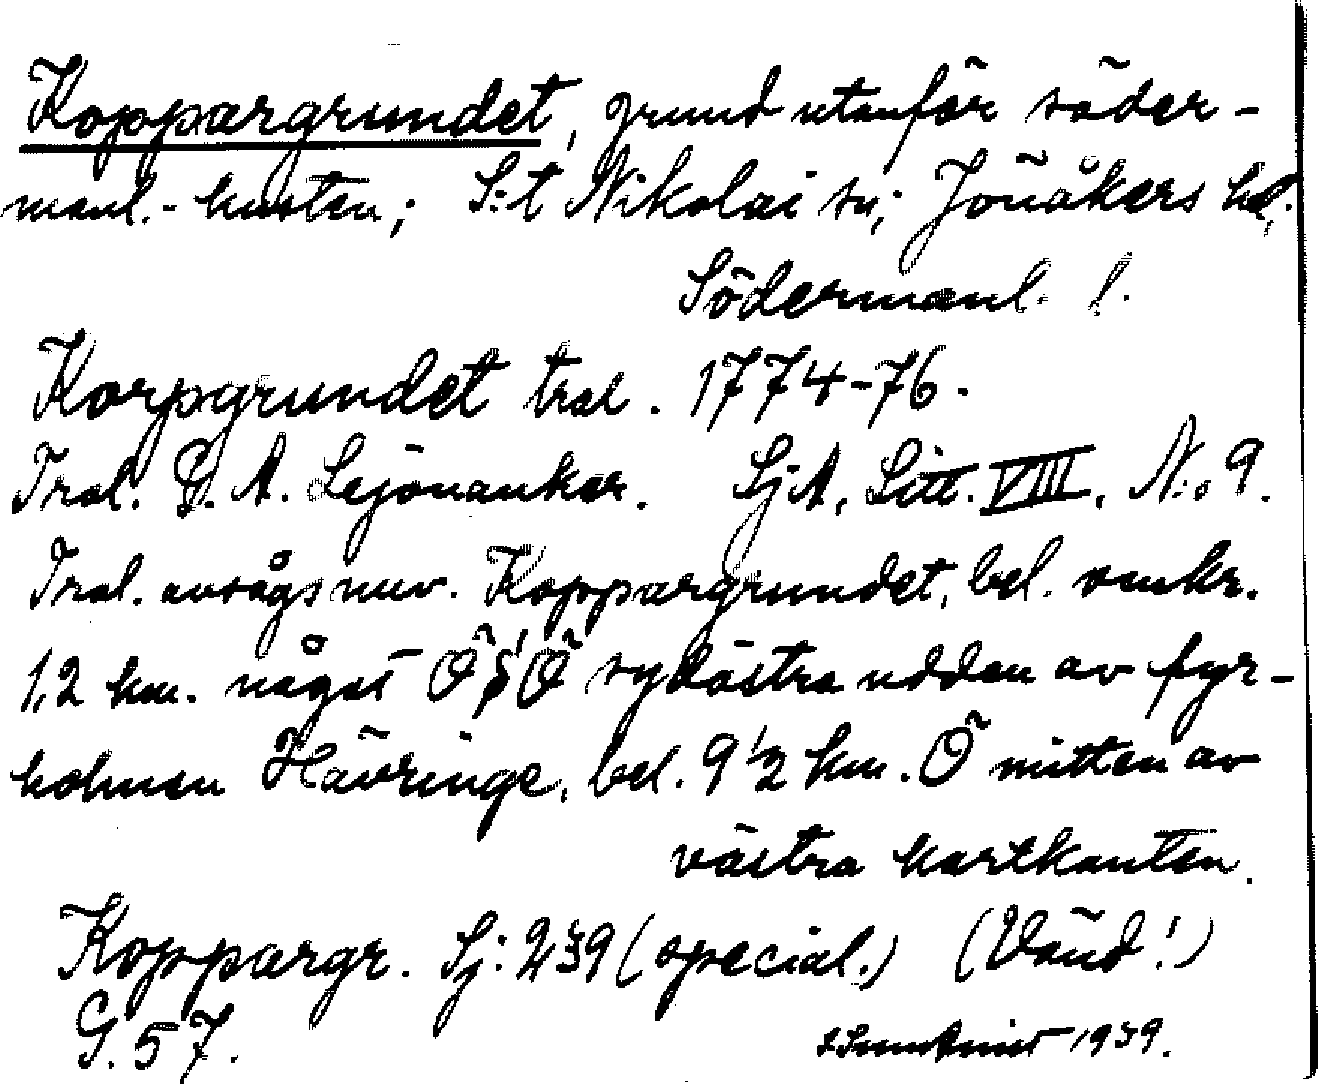 Koppargrundet, grund utanför söder-
manl.-kusten; S:t Nikolai sn; Jönåkers hd.
Södermanl. l.
Korpgrundet tral. 1774-76.
Tral. G. A. Lejonankar. SjA, Litt. VIII, N:o 9.
Tral. avsågs nuv. Koppargrundet, bel. omkr.
1,2 km. något ÖSÖ sydöstra udden av fyr-
holmen Hävringe, bel. 9 1/2 km. Ö mitten av
västra kartkanten.
Koppargr. Sj: 239 (special.) (Vänd!)
G. 57. 1939.